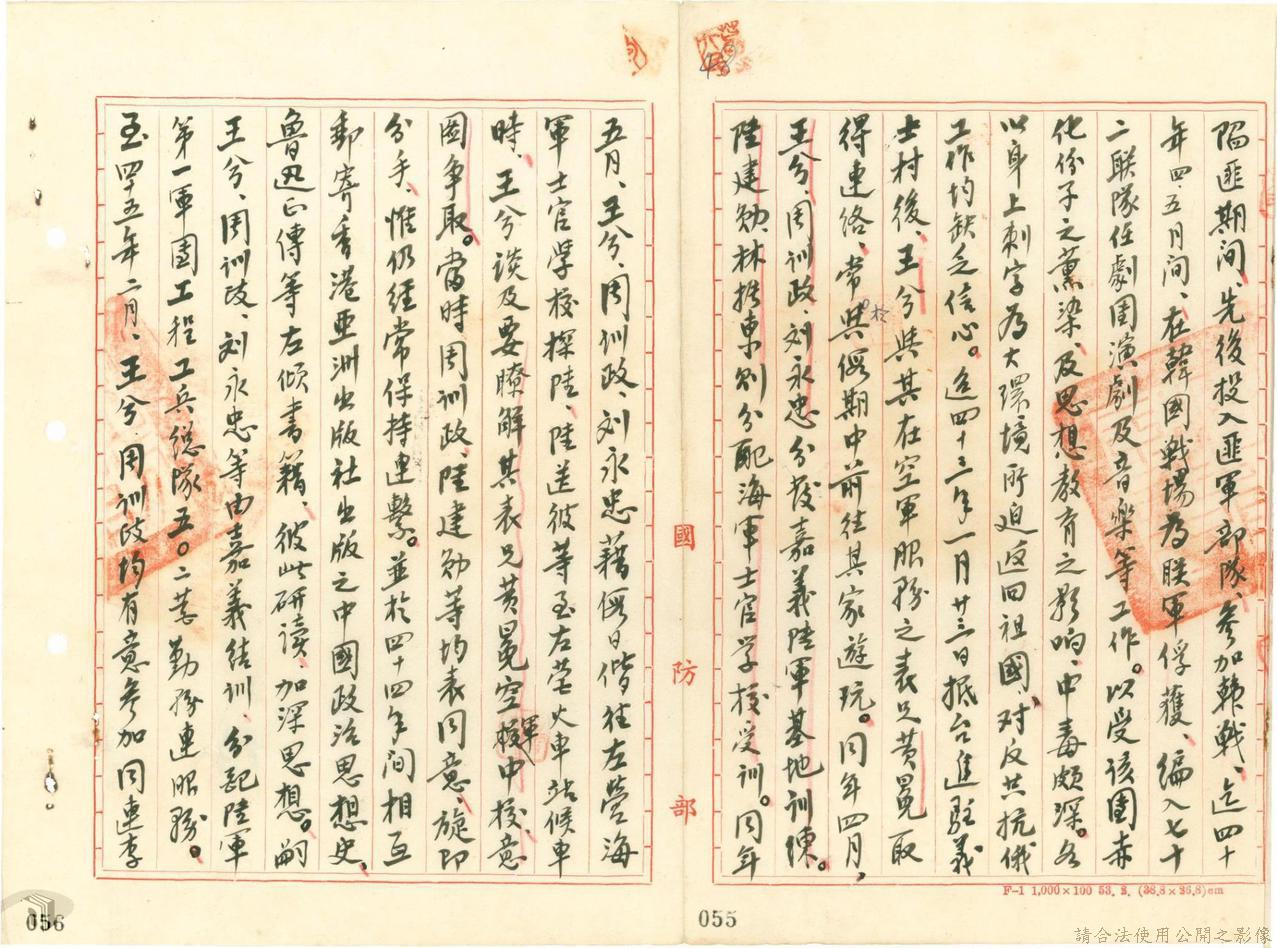 陷匪期间、先後投入匪軍部隊、參加韓戰、迄四十
年四、五月間、在韓國戰場為联軍俘獲、編入七十
二联隊任劇團演劇及音樂等工作。以受該團赤
化份子之薰染、及思想教育之影响、中毒頗深。各
以身上刺字為大環境所迫返回祖國、对反共抗俄
工作均缺乏信心。迄四十三年一月廿三日抵台進駐義
士村後、王兮與其在空軍服務之表兄黃冕取
得連络、常與假期中前往其家遊玩。同年四月、
王兮、周训政、刘永忠分发嘉義陸軍基地訓練。
陸建勉、林拱東則分配海軍士官学校受训。同年
五月、王兮、周训政、刘永忠藉假日偕往左營海
軍士官学校探陸、陸送彼等至左营火車站候車
時、王兮談及要瞭解其表兄黃冕空軍中校、意
圖争取。當時周训政、陸建勉等均表同意、旋即
分手、惟仍经常保持連繫。並於四十四年间相互
郵寄香港亞洲出版社出版之中國政治思想史、
魯迅正傳等左傾書籍、彼此研读、加深思想。嗣
王兮、周训政、刘永忠等由嘉義结训、分配陸軍
第一軍團工程工兵總隊五〇二营勤務連服務。
至四十五年二月、王兮、周训政均有意參加同連李
國防部
F-1 1,000×100 53. 2. (36.8×26.8)cm
055
056
請合法使用公開之影像